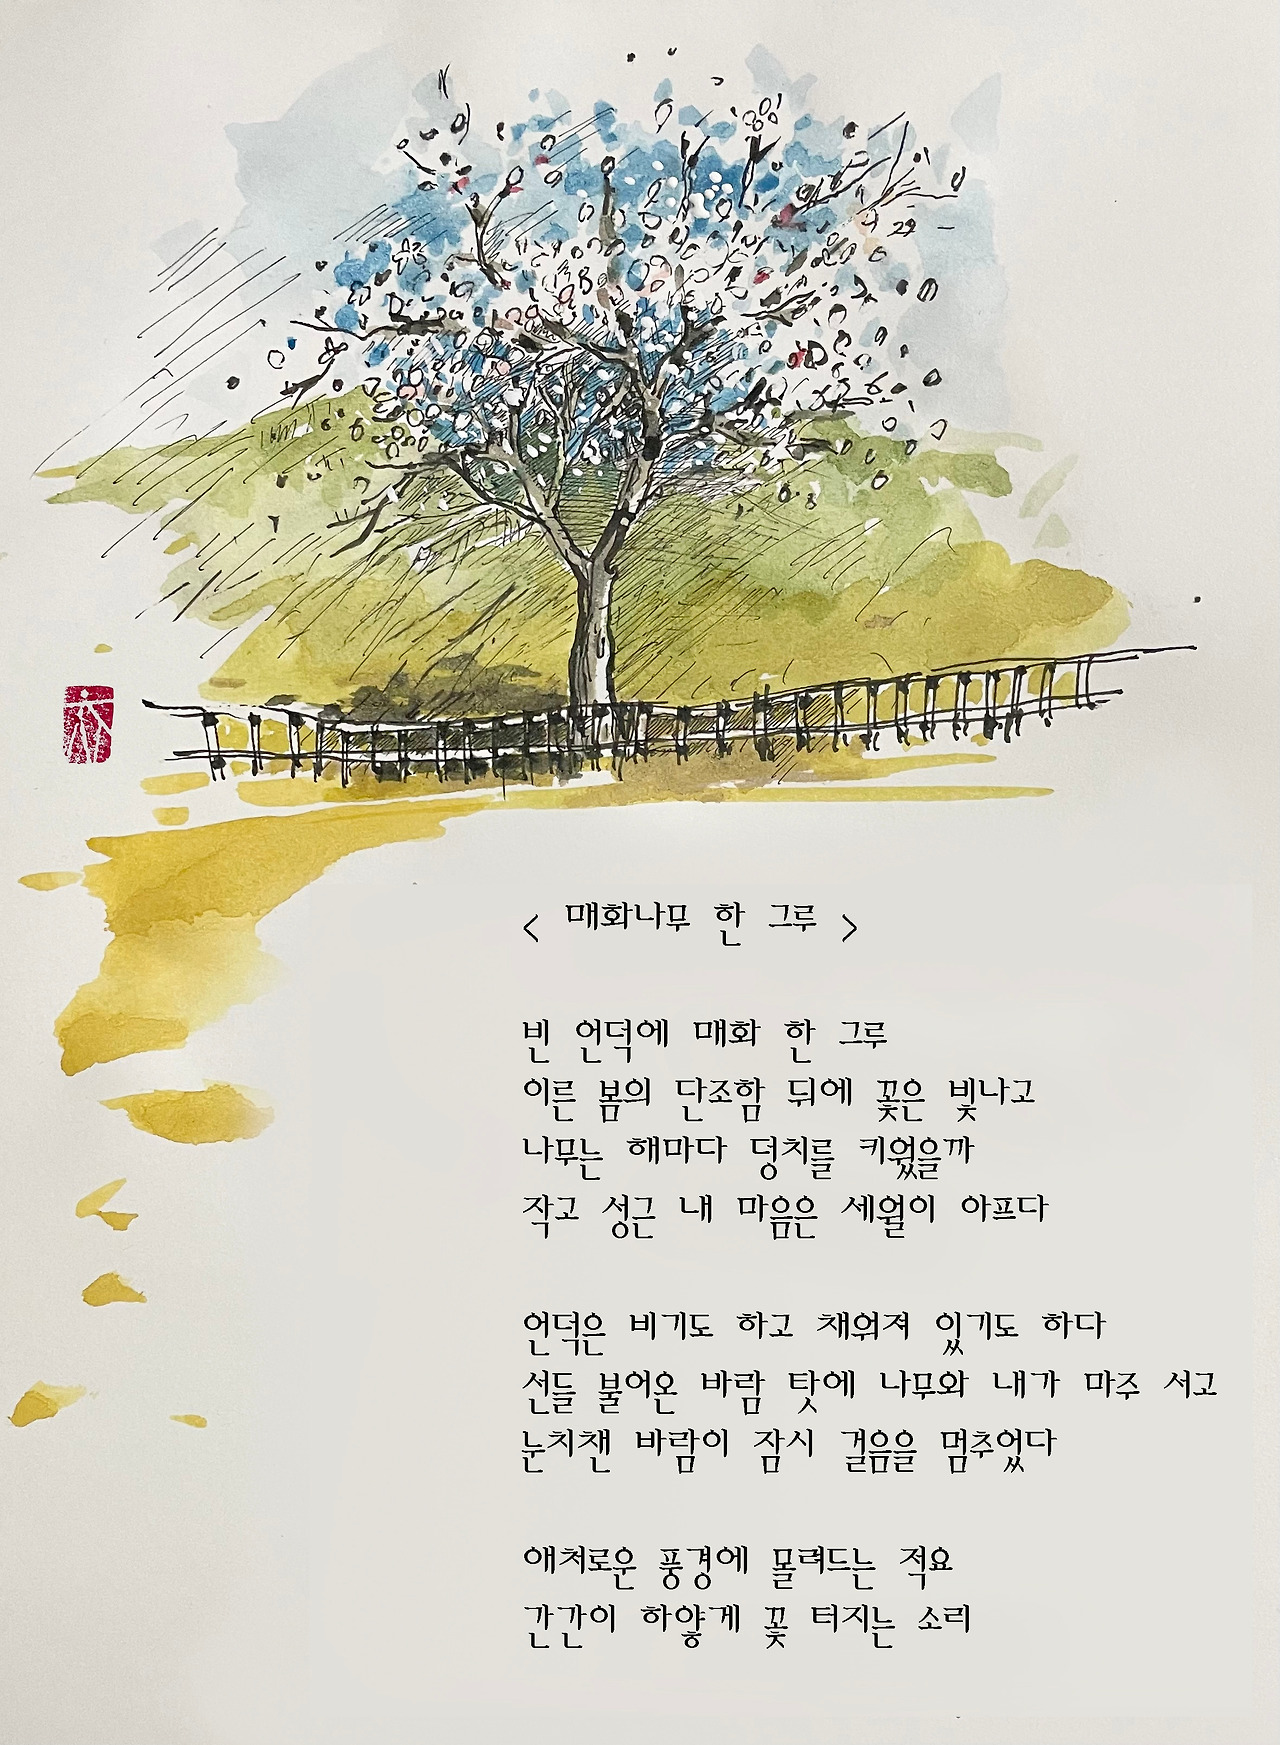 < 매화나무 한 그루 >
빈 언덕에 매화 한 그루
이른 봄의 단조함 뒤에 꽃은 빛나고
나무는 해마다 덩치를 키웠을까
작고 성근 내 마음은 세월이 아프다
언덕은 비기도 하고 채워져 있기도 하다
선들 불어온 바람 탓에 나무와 내가 마주 서고
눈치챈 바람이 잠시 걸음을 멈추었다
애처로운 풍경에 몰려드는 적요
간간이 하얗게 꽃 터지는 소리